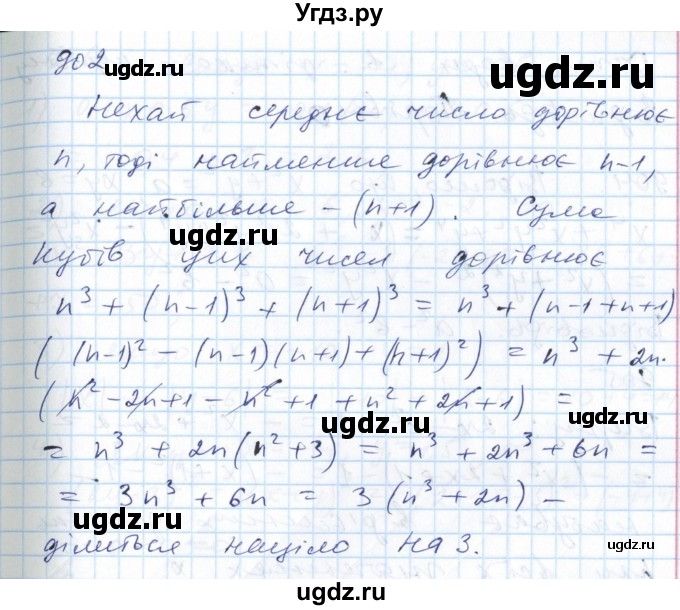 Угдз.ру
902
ugdz.ru ugdz.ru
Нехай середнє число дорівнює
n, тоді найменше дорівнює n-1,
а найбільше - (n+1). Сума
ugdz.ru
кубів цих чисел дорівнює
n³ + (n-1)³ + (n+1)³ = n³ + (n-1+n+1)
((n-1)² - (n-1)(n+1) + (n+1)²) = n³ + 2n·
(n² - 2n + 1 - n² + 1 + n² + 2n + 1) =
ugdz.ru ugdz.ru
= n³ + 2n(n² + 3) = n³ + 2n³ + 6n =
= 3n³ + 6n = 3(n³ + 2n) -
ugdz.ru ugdz.ru
ділиться націло на 3.
Угдз.ру